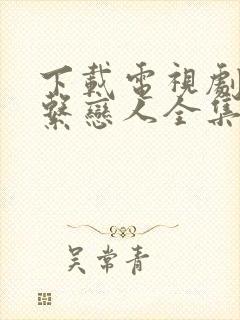 下載電視劇
繫戀人全集
吳常青